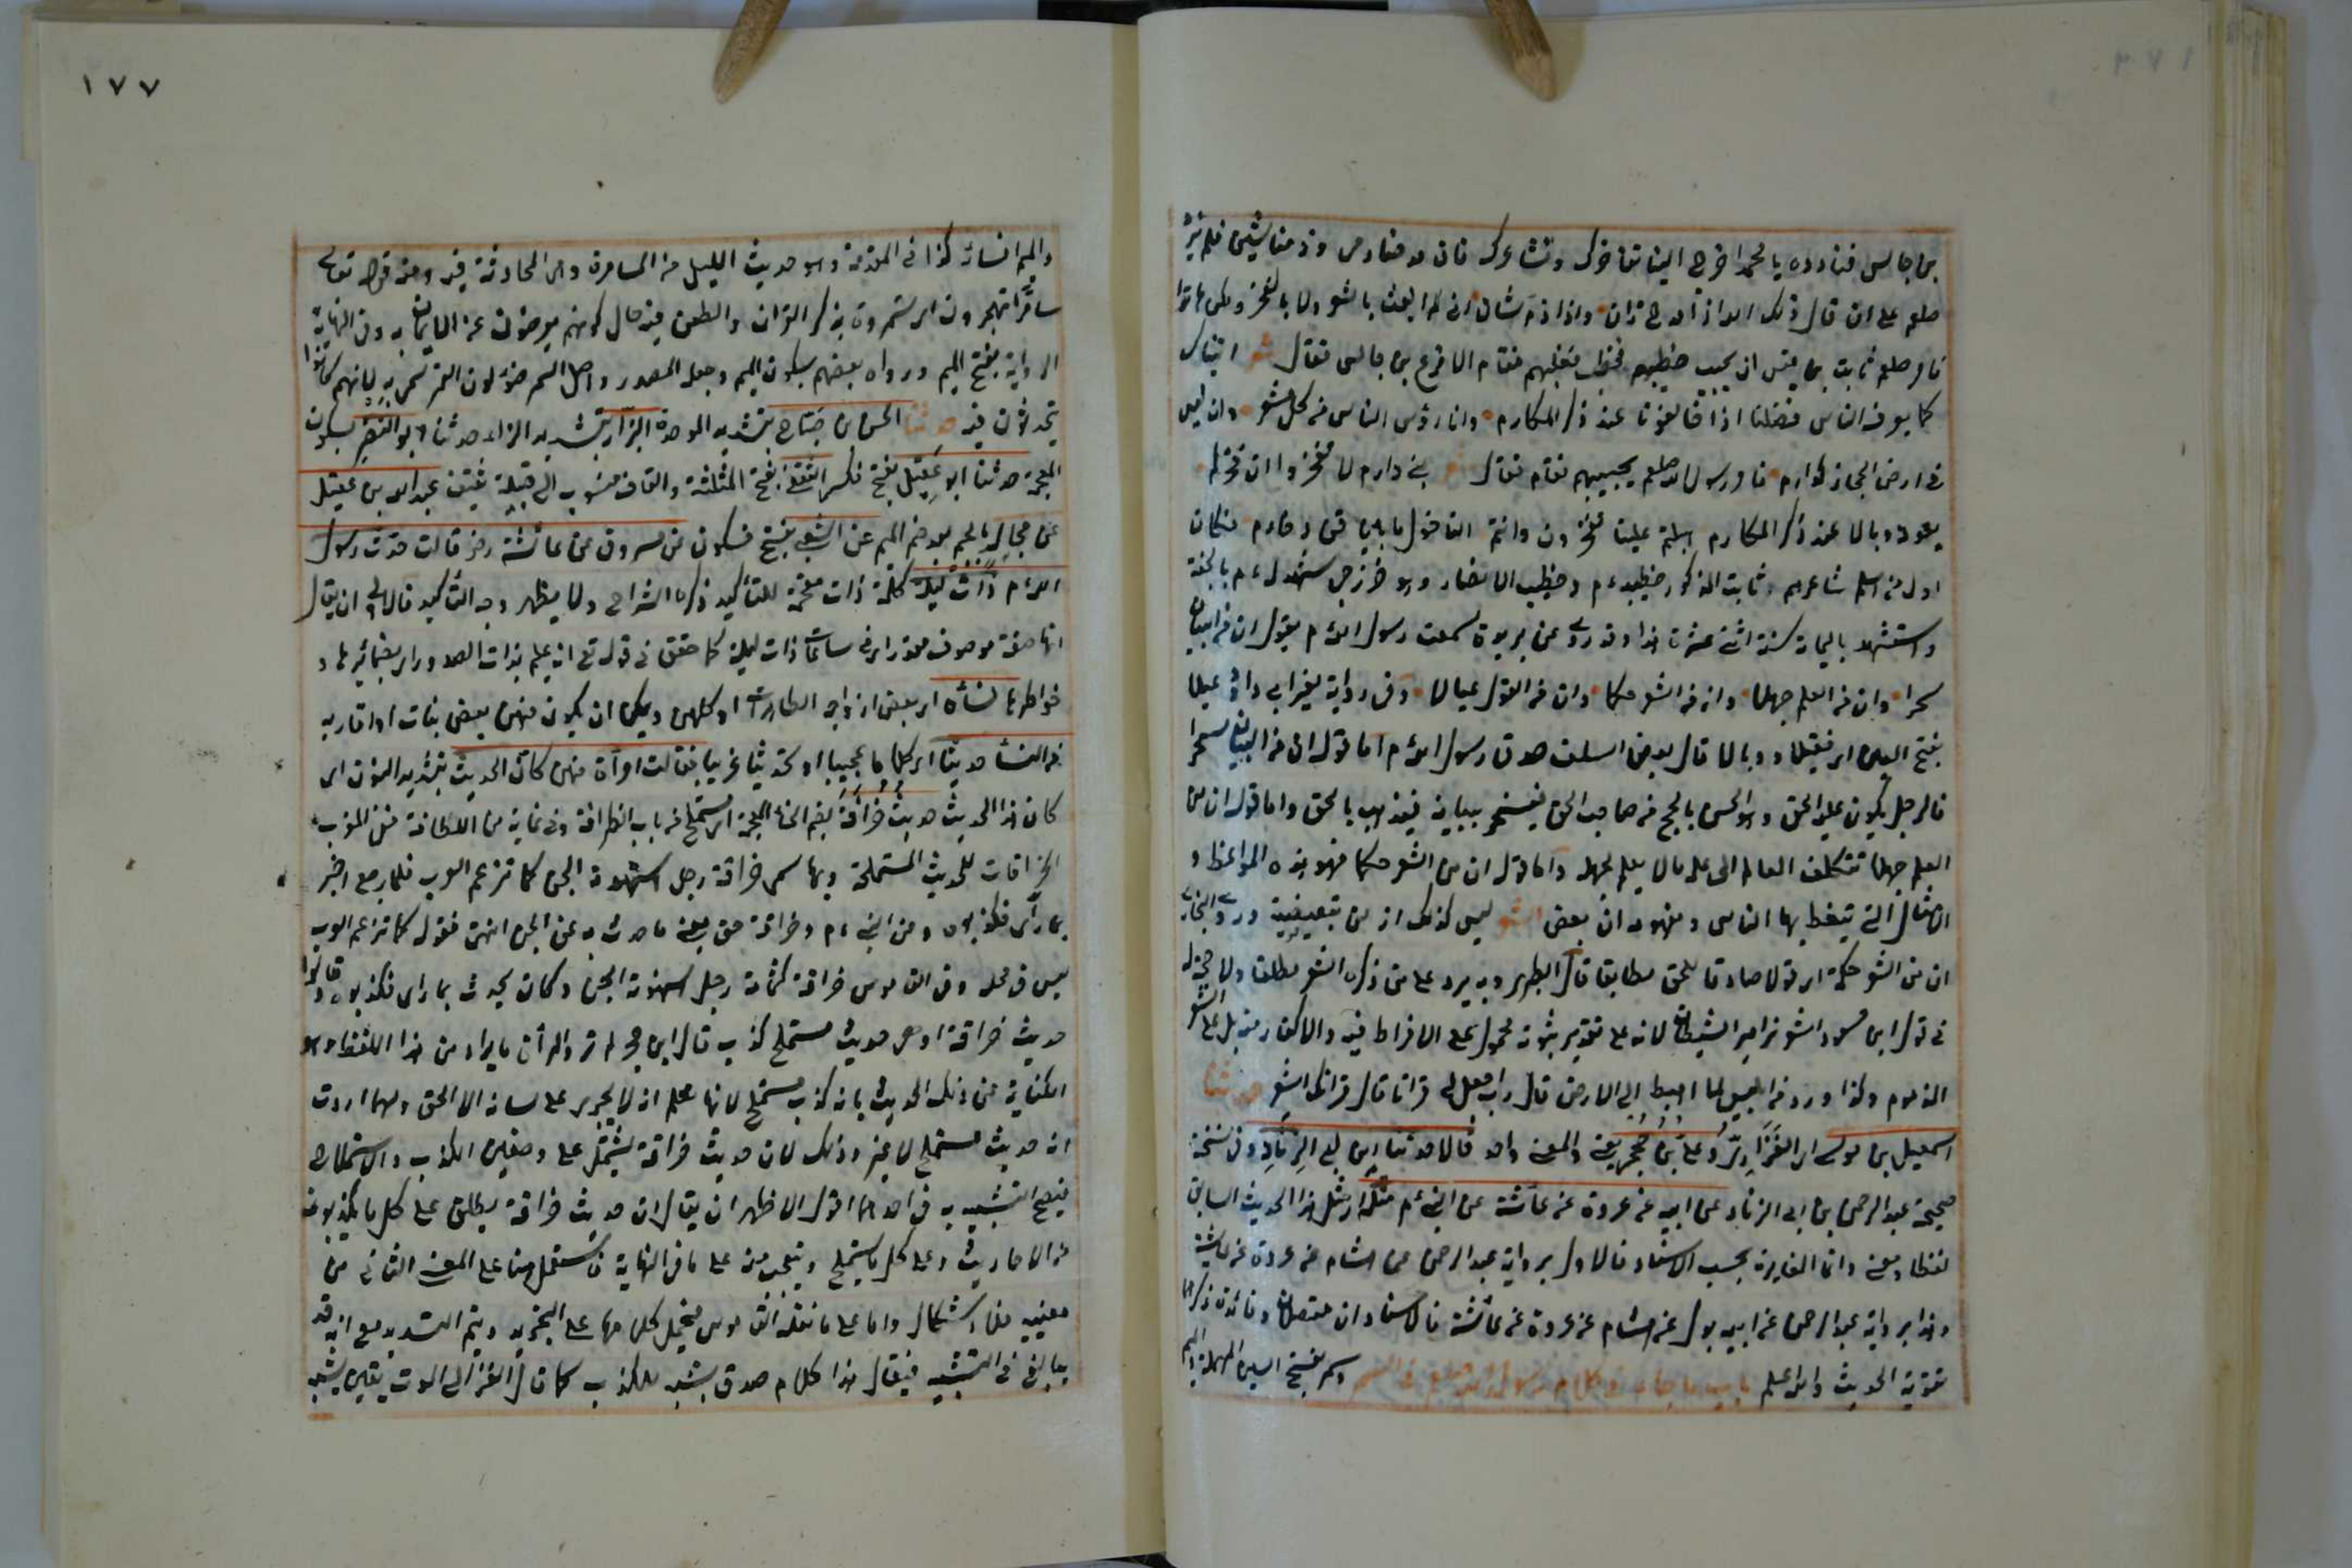 بن حابس فنادوه يا محمد اخرج الينا نفاخرك ونشاعرك فان مدحنا زين وذمنا شين فلم يزد
صلعم على ان قال ذلك الله اذا مدح زان واذا ذم شان انى لم ابعث بالشعر ولا بالفخر ولكن هاتوا
فامر صلعم ثابت بن قيس ان يجيب خطيبهم فخطب فغلبهم فقام الاقرع بن حابس فقال شعر اتيناك
كما يعرف الناس فضلنا اذا خالفونا عند ذكر المكارم وانا رؤس الناس من كل معشر وان ليس
فى ارض الحجاز كدارم فامر رسول الله صلعم يجيبهم فقام فقال بنى دارم لا تفخروا ان فخركم
يعود وبالا عند ذكر المكارم هبلتم علينا تفخرون وانتم لنا خول ما بين قن وخادم فكان
اول من اسلم شاعرهم وثابت المذكور خطيبه ءم وخطيب الانصار وهو خزرجى شهد له ءم بالجنة
واستشهد باليمامة سنة اثنتى عشرة هذا وقد روى عن بريدة سمعت رسول الله ءم يقول ان من البيان
سحرا وان من العلم جهلا وان من الشعر حكما وان من القول عيالا وفى رواية لغير ابى داود عيلا
بفتح العين اى ثقيلا ووبالا قال بعض السلف صدق رسول الله ءم اما قوله ان من البيان سحرا
فالرجل يكون عليه الحق وهو الحن بالحجج من صاحب الحق فيسحر ببيانه فيذهب بالحق واما قوله ان من
العلم جهلا فتكلف العالم الى علمه ما لا يعلم يجهله واما قوله ان من الشعر حكما فهو هذه المواعظ و
الامثال التى يتعظ بها الناس ومفهومه ان بعض الشعر ليس كذلك اذ من تبعيضية وروى البخارى
ان من الشعر حكمة اى قولا صادقا للحق مطابقا قال الطبرى وبه يرد على من ذكره الشعر مطلقا ولا حجة له
فى قول ابن مسعود الشعر مزامير الشيطان لانه على تقدير ثبوته محمول على الافراط فيه والاكثار منه بل على الشعر
المذموم وكذا ورد من ابليس لما اهبط الى الارض قال رب اجعل لى قرانا قال قرانك الشعر حدثنا
اسمعيل بن موسى الفزارى وعلى بن حجر يعنى والمعنى واحد قالا حدثنا ابن ابى الزناد وفى نسخة
صحيحة عبد الرحمن بن ابى الزناد عن ابيه عن عروة عن عائشة عن النبى ءم مثله اى مثل هذا الحديث السابق
لفظا ومعنى وانما المغايرة بحسب الاسناد فالاول برواية عبد الرحمن عن هشام عن عروة عن عائشة
وهذا برواية عبد الرحمن عن ابيه بدل عن هشام عن عروة عن عائشة فالاسنادان متصلان وفائدة ذكرهما
تقوية الحديث والله اعلم باب ما جاء فى كلام رسول الله صلعم فى السمر وسمر بفتح السين المهملة والميم
١٧٧
والميم افسانه كذا فى المقدمة وهو حديث الليل من المسامرة وهى المحادثة فيه ومنه قوله تعالى
سامرا تهجرون اى يسمرون بذكر القران والطعن فيه حال كونهم يعرضون عن الايمان به وفى النهاية
الرواية بفتح الميم ورواه بعضهم بسكون الميم وجعله المصدر واصل السمر ضوء لون القمر سمى به لانهم كانوا
يتحدثون فيه حدثنا الحسن بن صباح بتشديد الموحدة البزار بتشديد الزاء حدثنا ابو النضر بسكون
المعجمة حدثنا ابو عقيل بفتح فكسر الثقفى بفتح المثلثة والقاف منسوب الى قبيلة ثقيف عبد الله بن عقيل
عن مجالد بالجيم بعد ضم الميم عن الشعبى بفتح فسكون عن مسروق عن عائشة رض قالت حدث رسول
الله ءم ذات ليلة كلمة ذات مقحمة للتأكيد ذكره الشراح ولا يظهر وجه التأكيد فالاولى ان يقال
انها صفة موصوف مقدر اى فى ساعة ذات ليلة كما حقق فى قوله تع انه عليم بذات الصدور اى بضمائرها و
خواطرها نساءه اى بعض ازواجه الطاهرات او كلهن ويمكن ان يكون منهن بعض بنات او اقاربه
من النساء حديثا اى كلاما عجيبا او تحديثا غريبا فقالت امرأة منهن كأن الحديث بتشديد النون اى
كان هذا الحديث حديث خرافة بضم الخاء المعجمة اى مستملح من باب الظرافة وفى غاية من اللطافة ففى المغرب
الخرافات للحديث المستملحة وبها سمى خرافة رجل استهوته الجن كما تزعم العرب فلما رجع اخبر
بما رأى فكذبوه وعن النبى ءم وخرافة حق يعنى ما حدث به عن الجن انتهى فقوله كما تزعم العرب
ليس فى محله وفى القاموس خرافة كثمامة رجل استهوته الجن وكان يحدث بما راى فكذبوه وقالوا
حديث خرافة او هى حديث مستملح كذب قال ابن حجر لم ترد المرأة ما يراد من هذا اللفظ وهو
الكناية عن ذلك الحديث بانه كذب مستملح لانها تعلم انه لا يجرى على لسانه الا الحق وانما ارادت
انه حديث مستملح لا غير وذلك لان حديث خرافة يشتمل على وصفين الكذب والاستملاح
فيصح التشبيه به فى احدهما اقول الاظهر ان يقال ان حديث خرافة يطلق على كل ما يكذبونه
من الاحاديث وعلى كل ما يستملح ويتعجب منه على ما فى النهاية فاستعمل هنا على المعنى الثانى من
معنييه فلا اشكال واما على ما نقله القاموس فيحمل كلامها على التجريد ويتم التشبيه مع انه قد
يبالغ فى التشبيه فيقال هذا كلام صدق يشبه الكذب كما قال الغزالى الموت يقين يشبه